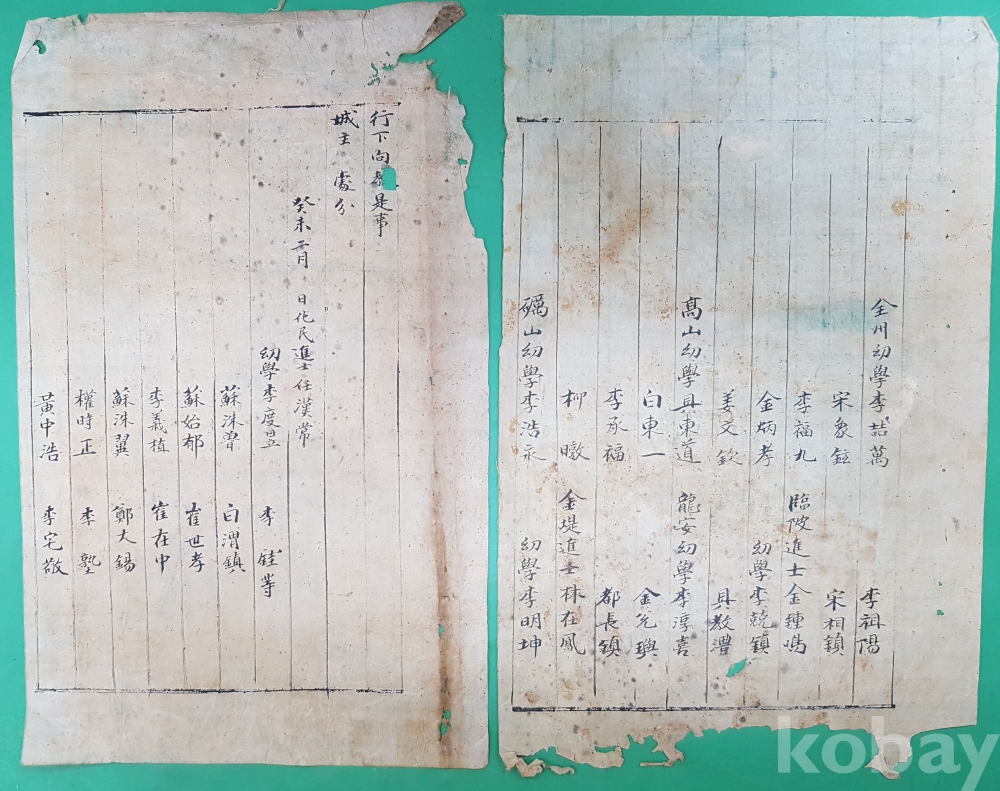 行下向教是事
城主 處分
癸未 二月 日化民進士任漢常
幼學李度昱 李 等
蘇洙曾 白渭鎮
蘇始郁 崔世孝
李義植 崔在中
蘇洙翼 鄭大錫
權時正 李塾
黃中浩 李宅敬
全州幼學李喆萬 李祖陽
宋象鉉 宋相鎮
李福九 臨陂進士金鍾鳴
金炳孝 幼學李兢鎮
姜文欽 具教澧
高山幼學具東道 龍安幼學李淳喜
白東一 金允璵
李承福 都長鎮
柳暾 金堤進士林在鳳
礪山幼學李浩承 幼學李明坤
kobay